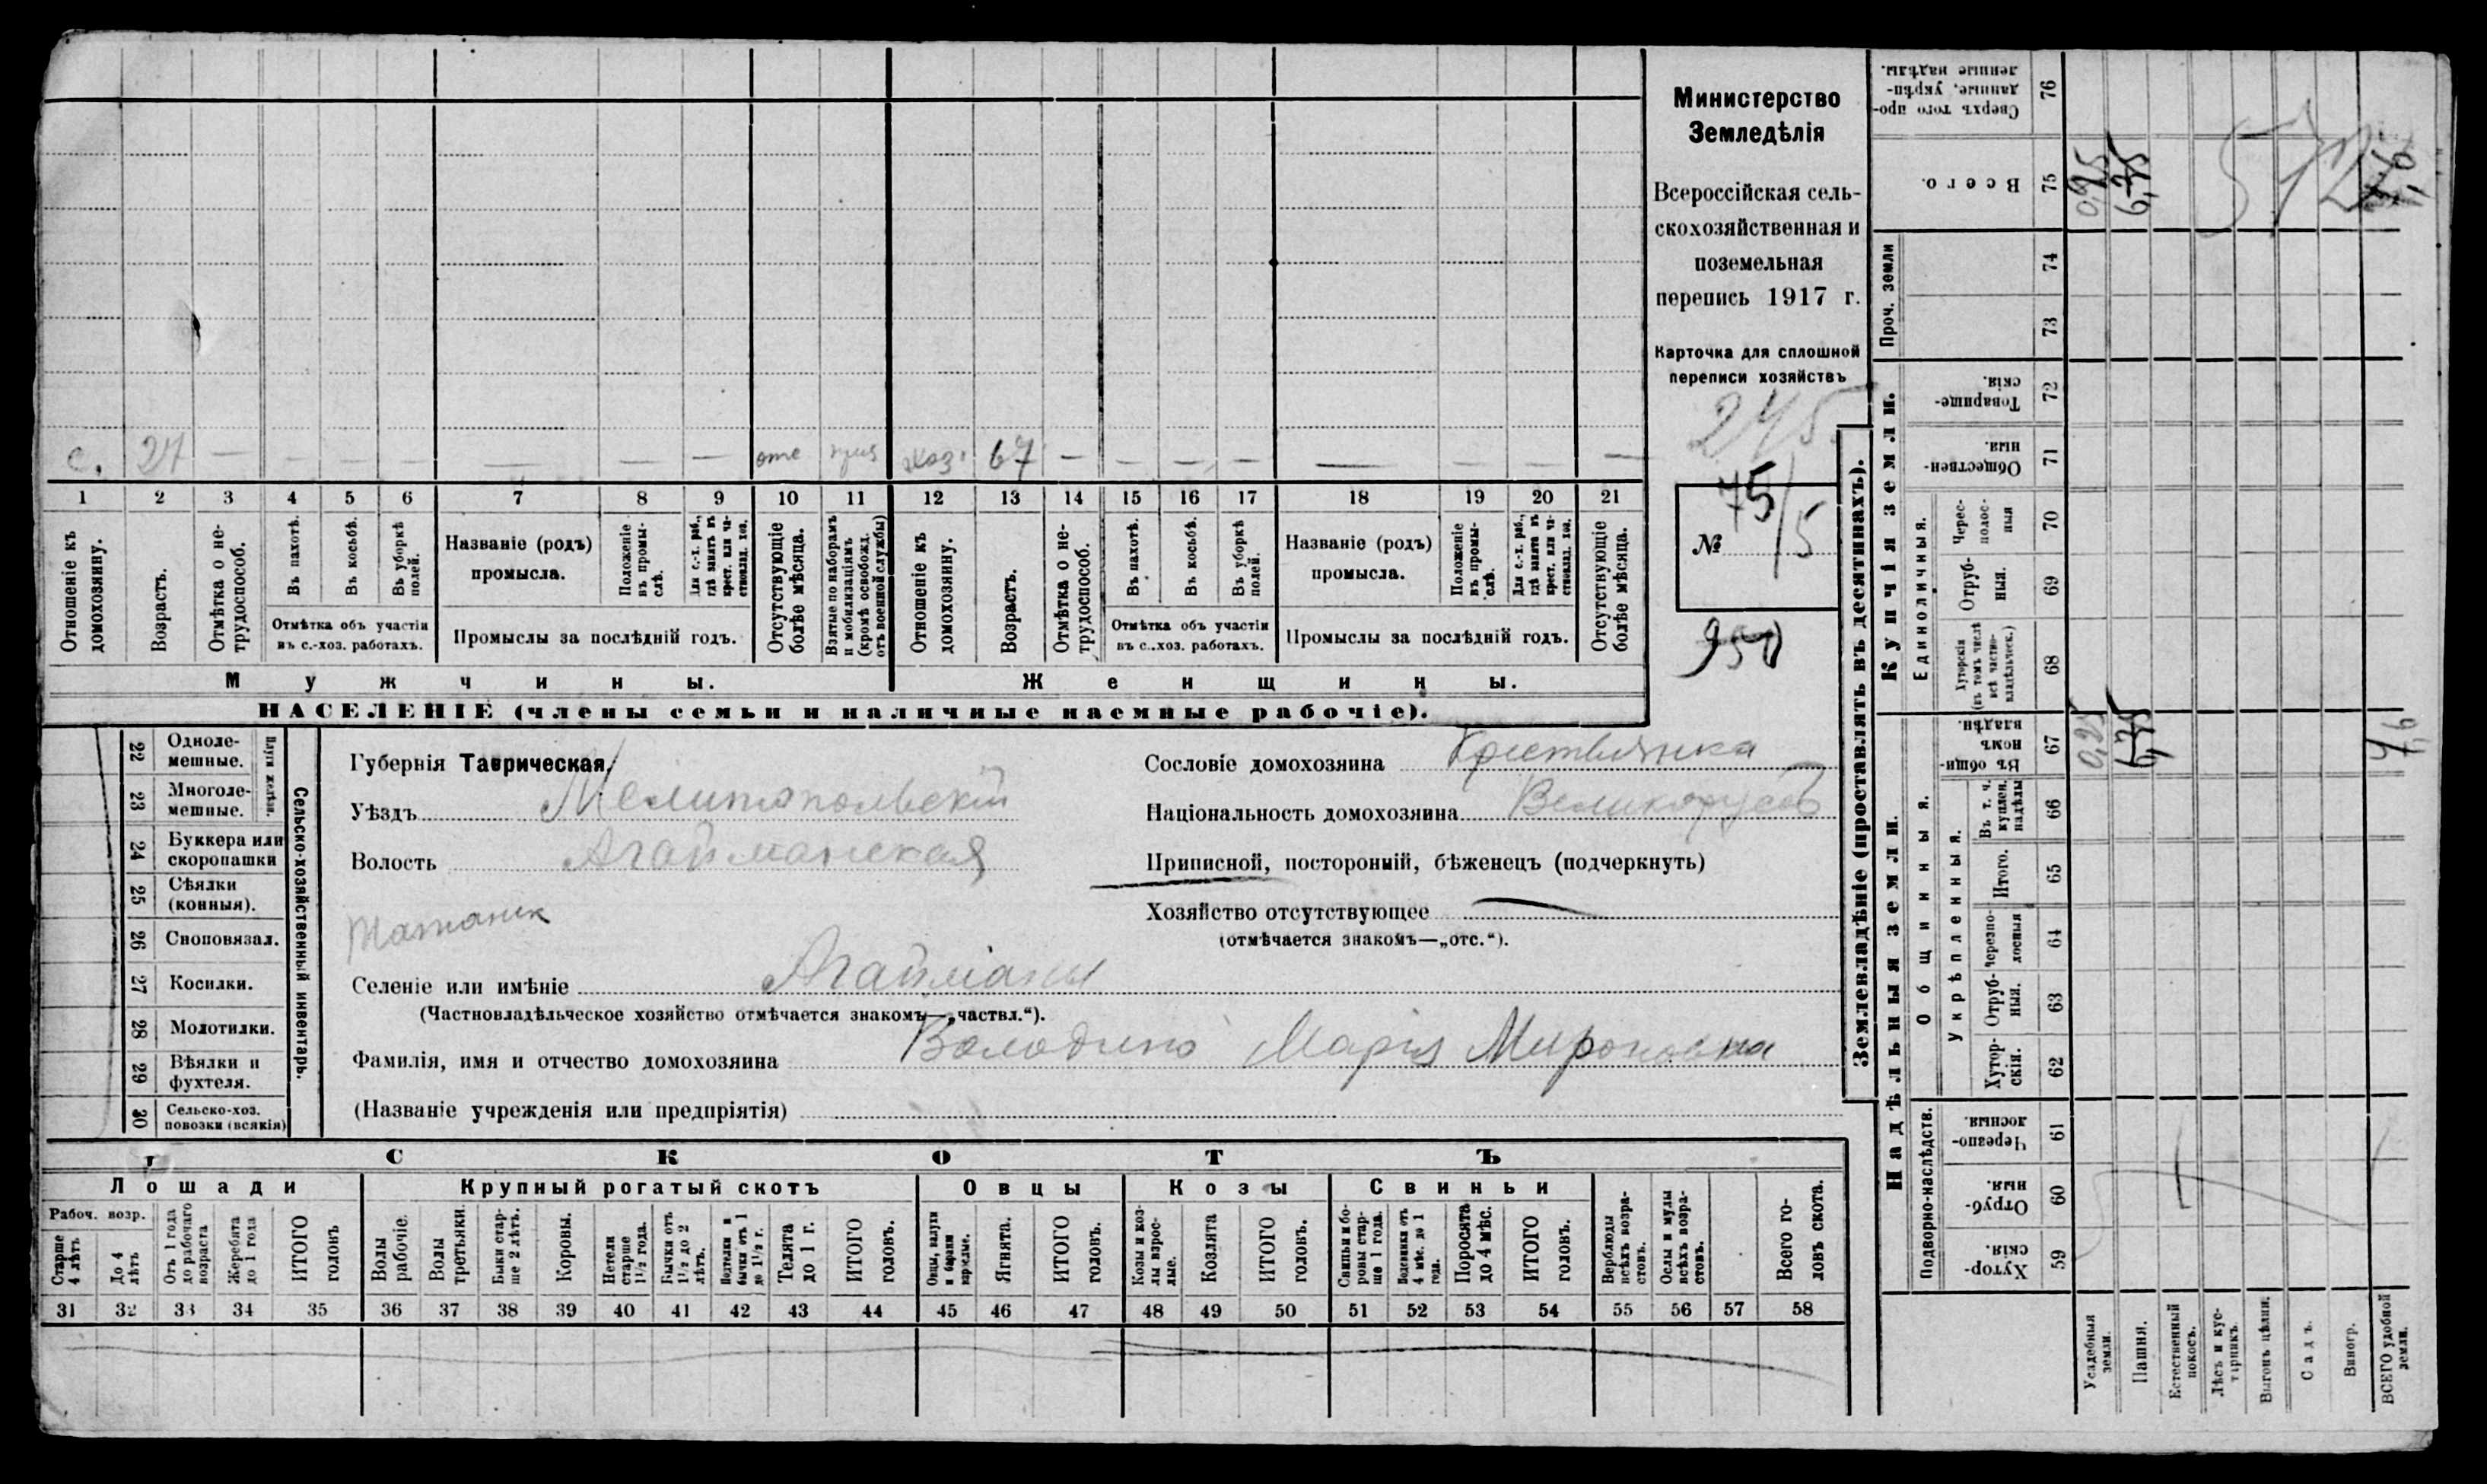 Министерство
Земледѣлія
Всероссійская сель-
скохозяйственная и
поземельная
перепись 1917 г.
Карточка для сплошной
переписи хозяйствъ
245
№ 75/5
950
с. 27 — — — — — — — отс хоз. 67 — — — — — — — —
1 2 3 4 5 6 7 8 9 10 11 12 13 14 15 16 17 18 19 20 21
Отношеніе къ домохозяину.
Возрастъ.
Отмѣтка о не-трудоспособ.
Въ пахотѣ.
Въ косьбѣ.
Въ уборкѣ полей.
Отмѣтка объ участіи
въ с.-хоз. работахъ.
Названіе (родъ)
промысла.
Положеніе въ промы-слѣ.
Для с.-х. раб., гдѣ занятъ въ крест. или ча-стновлад. хоз.
Промыслы за послѣдній годъ.
Отсутствующіе болѣе мѣсяца.
Взятые по наборамъ и мобилизаціямъ (кромѣ освобожд. отъ военной службы)
Отношеніе къ домохозяину.
Возрастъ.
Отмѣтка о не-трудоспособ.
Въ пахотѣ.
Въ косьбѣ.
Въ уборкѣ полей.
Отмѣтка объ участіи
въ с.-хоз. работахъ.
Названіе (родъ)
промысла.
Положеніе въ промы-слѣ.
Для с.-х. раб., гдѣ занята въ крест. или ча-стновлад. хоз.
Промыслы за послѣдній годъ.
Отсутствующіе болѣе мѣсяца.
Мужчины. Женщины.
НАСЕЛЕНІЕ (члены семьи и наличные наемные рабочіе).
Сельско-хозяйственный инвентарь.
Плуги желѣзн.
22 Одноле-мешные.
23 Многоле-мешные.
24 Буккера или скоропашки
25 Сѣялки (конныя).
26 Сноповязал.
27 Косилки.
28 Молотилки.
29 Вѣялки и фухтеля.
30 Сельско-хоз. повозки (всякія)
Губернія Таврическая.
Уѣздъ Мелитопольскій
Волость Агайманская
Селеніе или имѣніе Агайманы
(Частновладѣльческое хозяйство отмѣчается знакомъ—„частвл.“).
Фамилія, имя и отчество домохозяина Володина Марія Мироновна
(Названіе учрежденія или предпріятія)
Сословіе домохозяина Крестьянка
Національность домохозяина Великорусов
Приписной, посторонній, бѣженецъ (подчеркнуть)
Хозяйство отсутствующее —
(отмѣчается знакомъ—„отс.“).
СКОТЪ
Лошади Крупный рогатый скотъ Овцы Козы Свиньи
Рабоч. возр.
Старше 4 лѣтъ
До 4 лѣтъ
Отъ 1 года до рабочаго возраста
Жеребята до 1 года
ИТОГО головъ
Волы рабочіе.
Волы третьяки.
Быки стар-ше 2 лѣтъ.
Коровы.
Нетели старше 1½ года.
Бычки отъ 1½ до 2 лѣтъ.
Подтелки и бычки отъ 1 до 1½ г.
Телята до 1 г.
ИТОГО головъ.
Овцы, валухи и бараны взрослые.
Ягнята.
ИТОГО головъ.
Козы и коз-лы взрос-лые.
Козлята
ИТОГО головъ.
Свиньи и бо-ровы стар-ше 1 года.
Подсвинки отъ 4 мѣс. до 1 года.
Поросята до 4 мѣс.
ИТОГО головъ.
Верблюды всѣхъ возра-стовъ.
Ослы и мулы всѣхъ возра-стовъ.
Всего го-ловъ скота.
31 32 33 34 35 36 37 38 39 40 41 42 43 44 45 46 47 48 49 50 51 52 53 54 55 56 57 58
Землевладѣніе (проставлять въ десятинахъ).
Надѣльныя земли.
Подворно-наслѣдств.
Хутор-скія. 59
Отруб-ныя. 60
Черезпо-лосныя. 61
Общинныя.
Укрѣпленныя.
Хутор-скія. 62
Отруб-ныя. 63
Черезпо-лосныя 64
Итого. 65
Въ т. ч. куплен. надѣлы 66
Въ общи-номъ владѣн. 67 0,25 6,75
Купчія земли.
Единоличныя.
Хуторскія (въ томъ числѣ всѣ частно-владѣльческ.) 68
Отруб-ныя. 69
Черес-полос-ныя 70
Обществен-ныя. 71
Товарище-скія. 72
Проч. земли
73 74
Всего. 75 6,75
Сверхъ того про-данные, укрѣп-ленные надѣлы. 76
572
Усадебныя земли.
Пашня.
Естественный покосъ.
Лѣсъ и кус-тарникъ.
Выгонъ цѣлин.
Садъ.
Виногр.
ВСЕГО удобной земли.